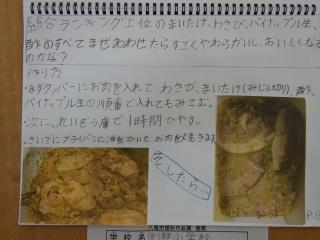 総合ランキング上位のまいたけ、わさび、パイナップル生、
酢のすべてまぜあわせたらすごくやわらかいし、おいしくなる
のかな?
作り方
・まずタッパーにお肉を入れて、わさび、まいたけ(みじん切り)、酢、
パイナップル生の順番で入れてもみこむ。
・次に、れいぞう庫で1時間ひやす。
・さいごにフライパンに油をひいて、お肉を焼きます。
そしたら…
八尾市理科作品展
学校名
小学校